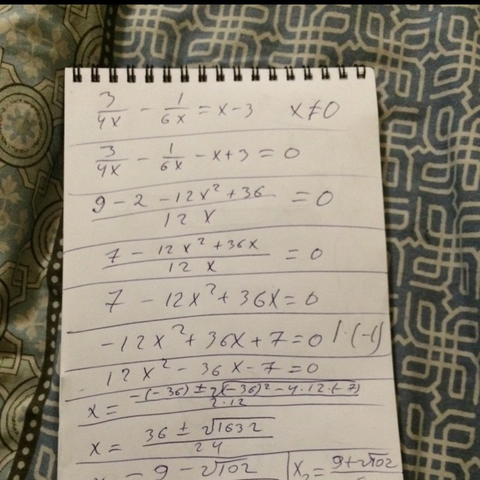 3/(4x) - 1/(6x) = x - 3    x ≠ 0
3/(4x) - 1/(6x) - x + 3 = 0
(9 - 2 - 12x² + 36)/(12x) = 0
(7 - 12x² + 36x)/(12x) = 0
7 - 12x² + 36x = 0
-12x² + 36x + 7 = 0 |·(-1)
12x² - 36x - 7 = 0
x = (-(-36) ± √((-36)² - 4·12·(-7)))/(2·12)
x = (36 ± √1632)/24
9 - √102    x₂ = 9 + √102